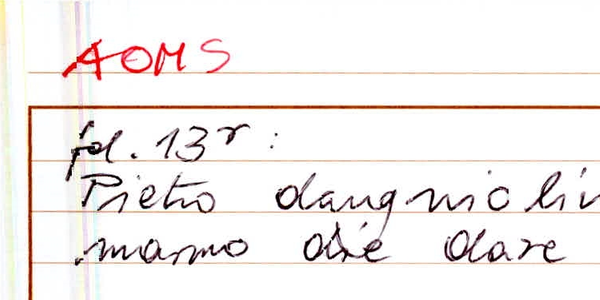 AOMS
fol. 13r:
Pietro dangniolin
marmo die dare